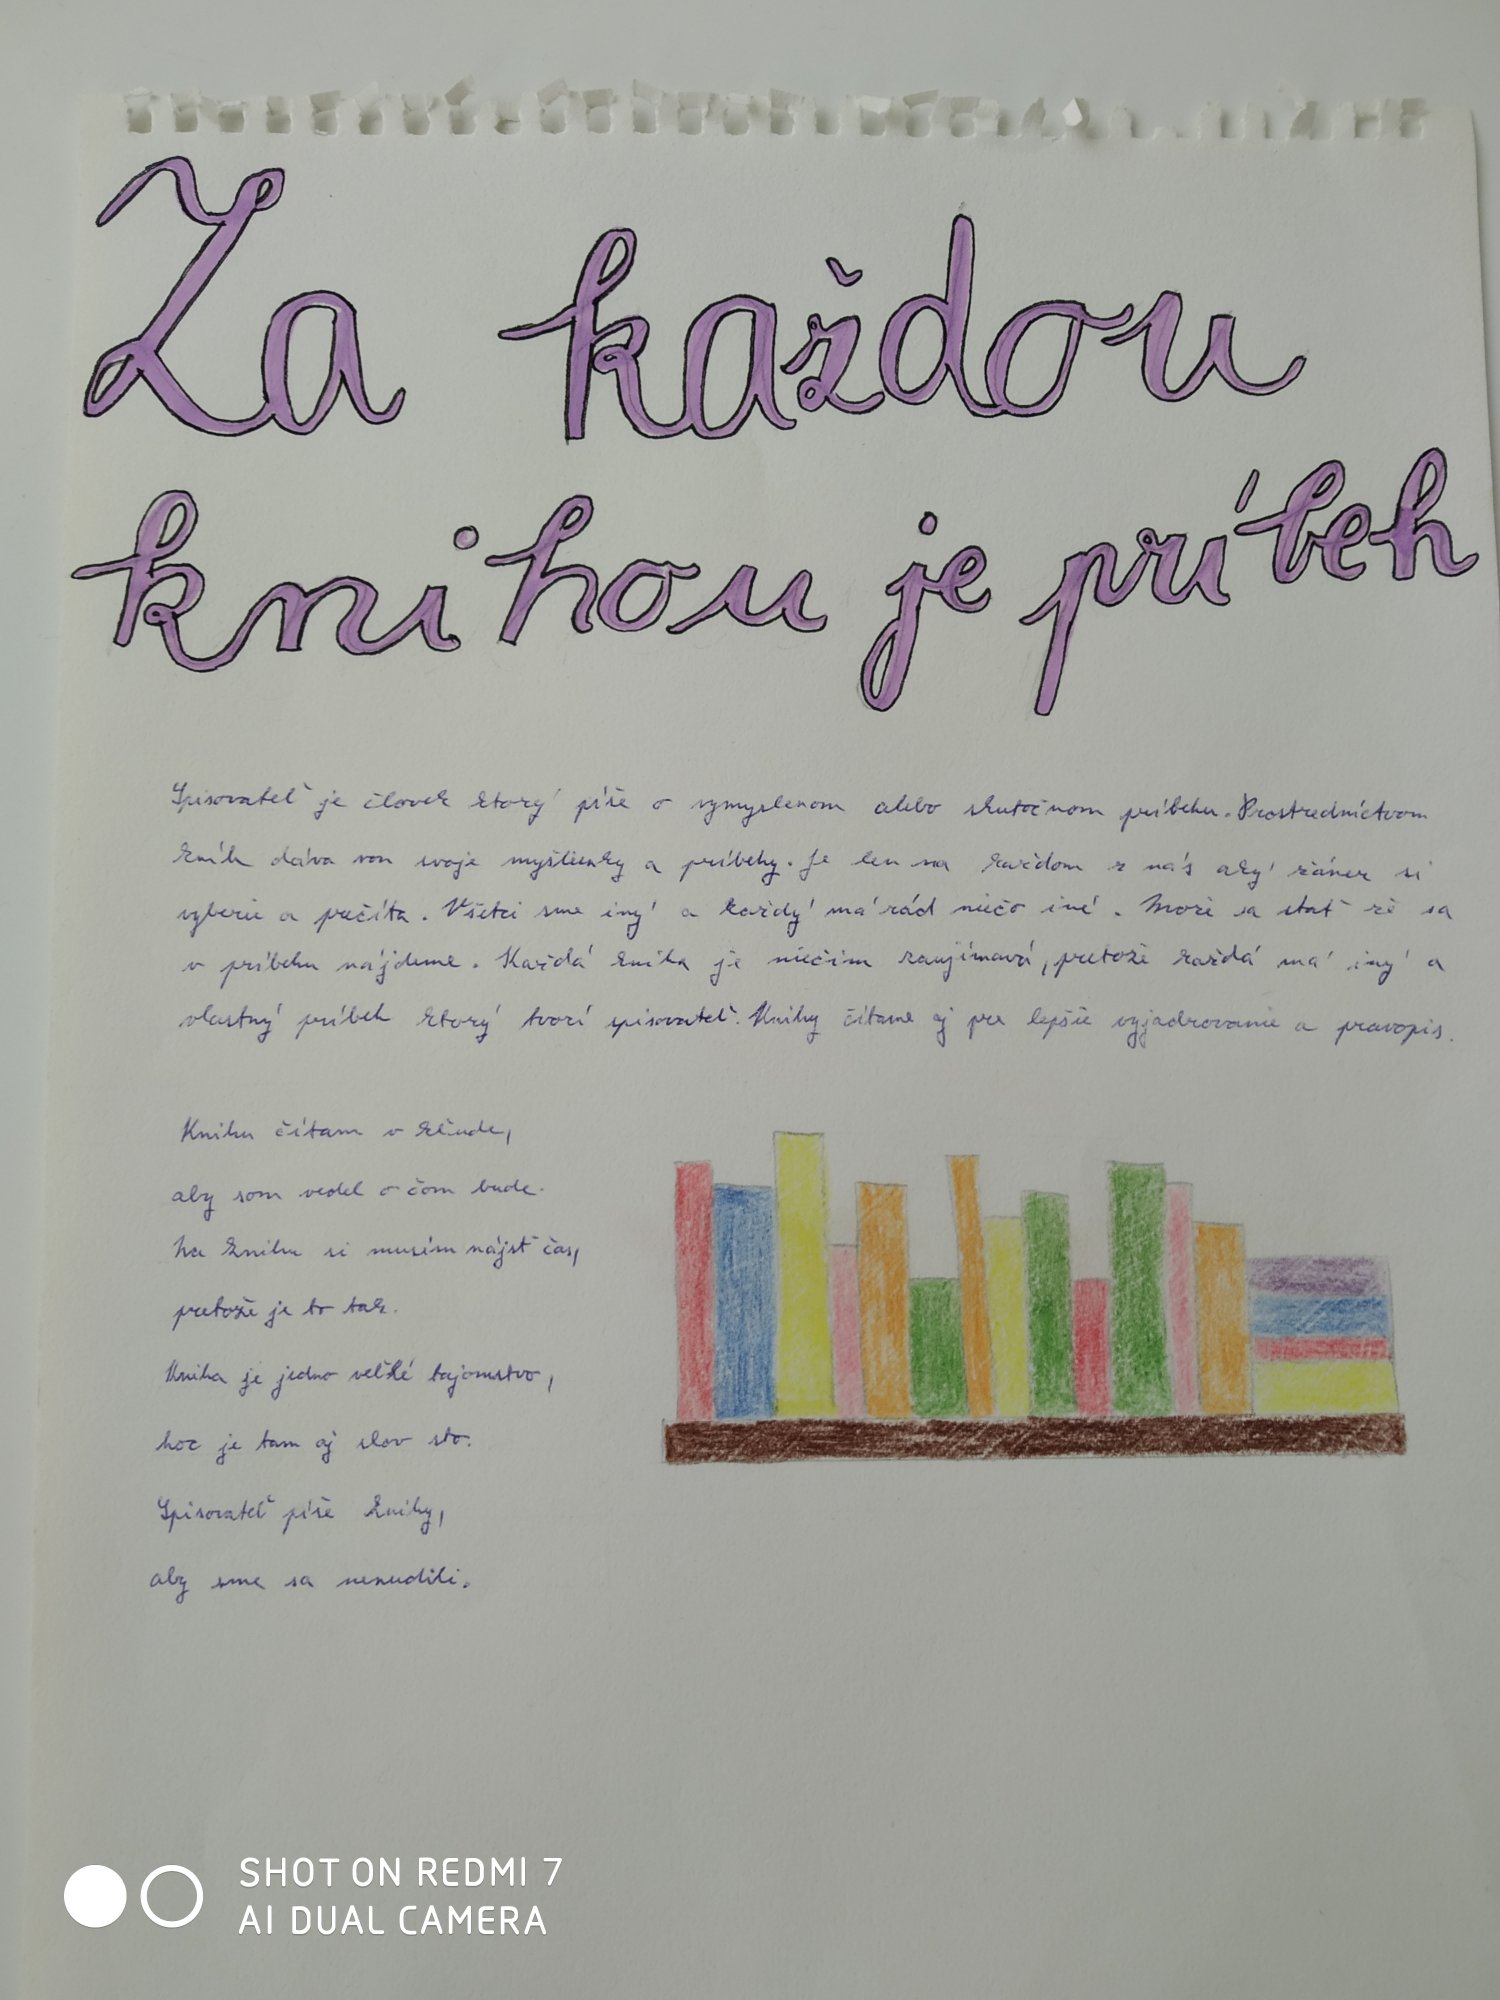 Za každou
knihou je príbeh
Spisovateľ je človek ktorý píše o vymyslenom alebo skutočnom príbehu. Prostredníctvom
kníh dáva von svoje myšlienky a príbehy. Je len na každom z nás aký žáner si
vyberie a prečíta. Všetci sme iný a každý má rád niečo iné. Može sa stať že sa
v príbehu nájdeme. Každá kniha je niečim zaujímavá, pretože každá má iný a
vlastný príbeh ktorý tvorí spisovateľ. Knihy čítame aj pre lepšie vyjadrovanie a pravopis.
Knihu čítam v kľude,
aby som vedel o čom bude.
Na knihu si musím nájsť čas,
pretože je to tak.
Kniha je jedno veľké tajomstvo,
hoc je tam aj slov sto.
Spisovateľ píše knihy,
aby sme sa nenudili.
SHOT ON REDMI 7
AI DUAL CAMERA